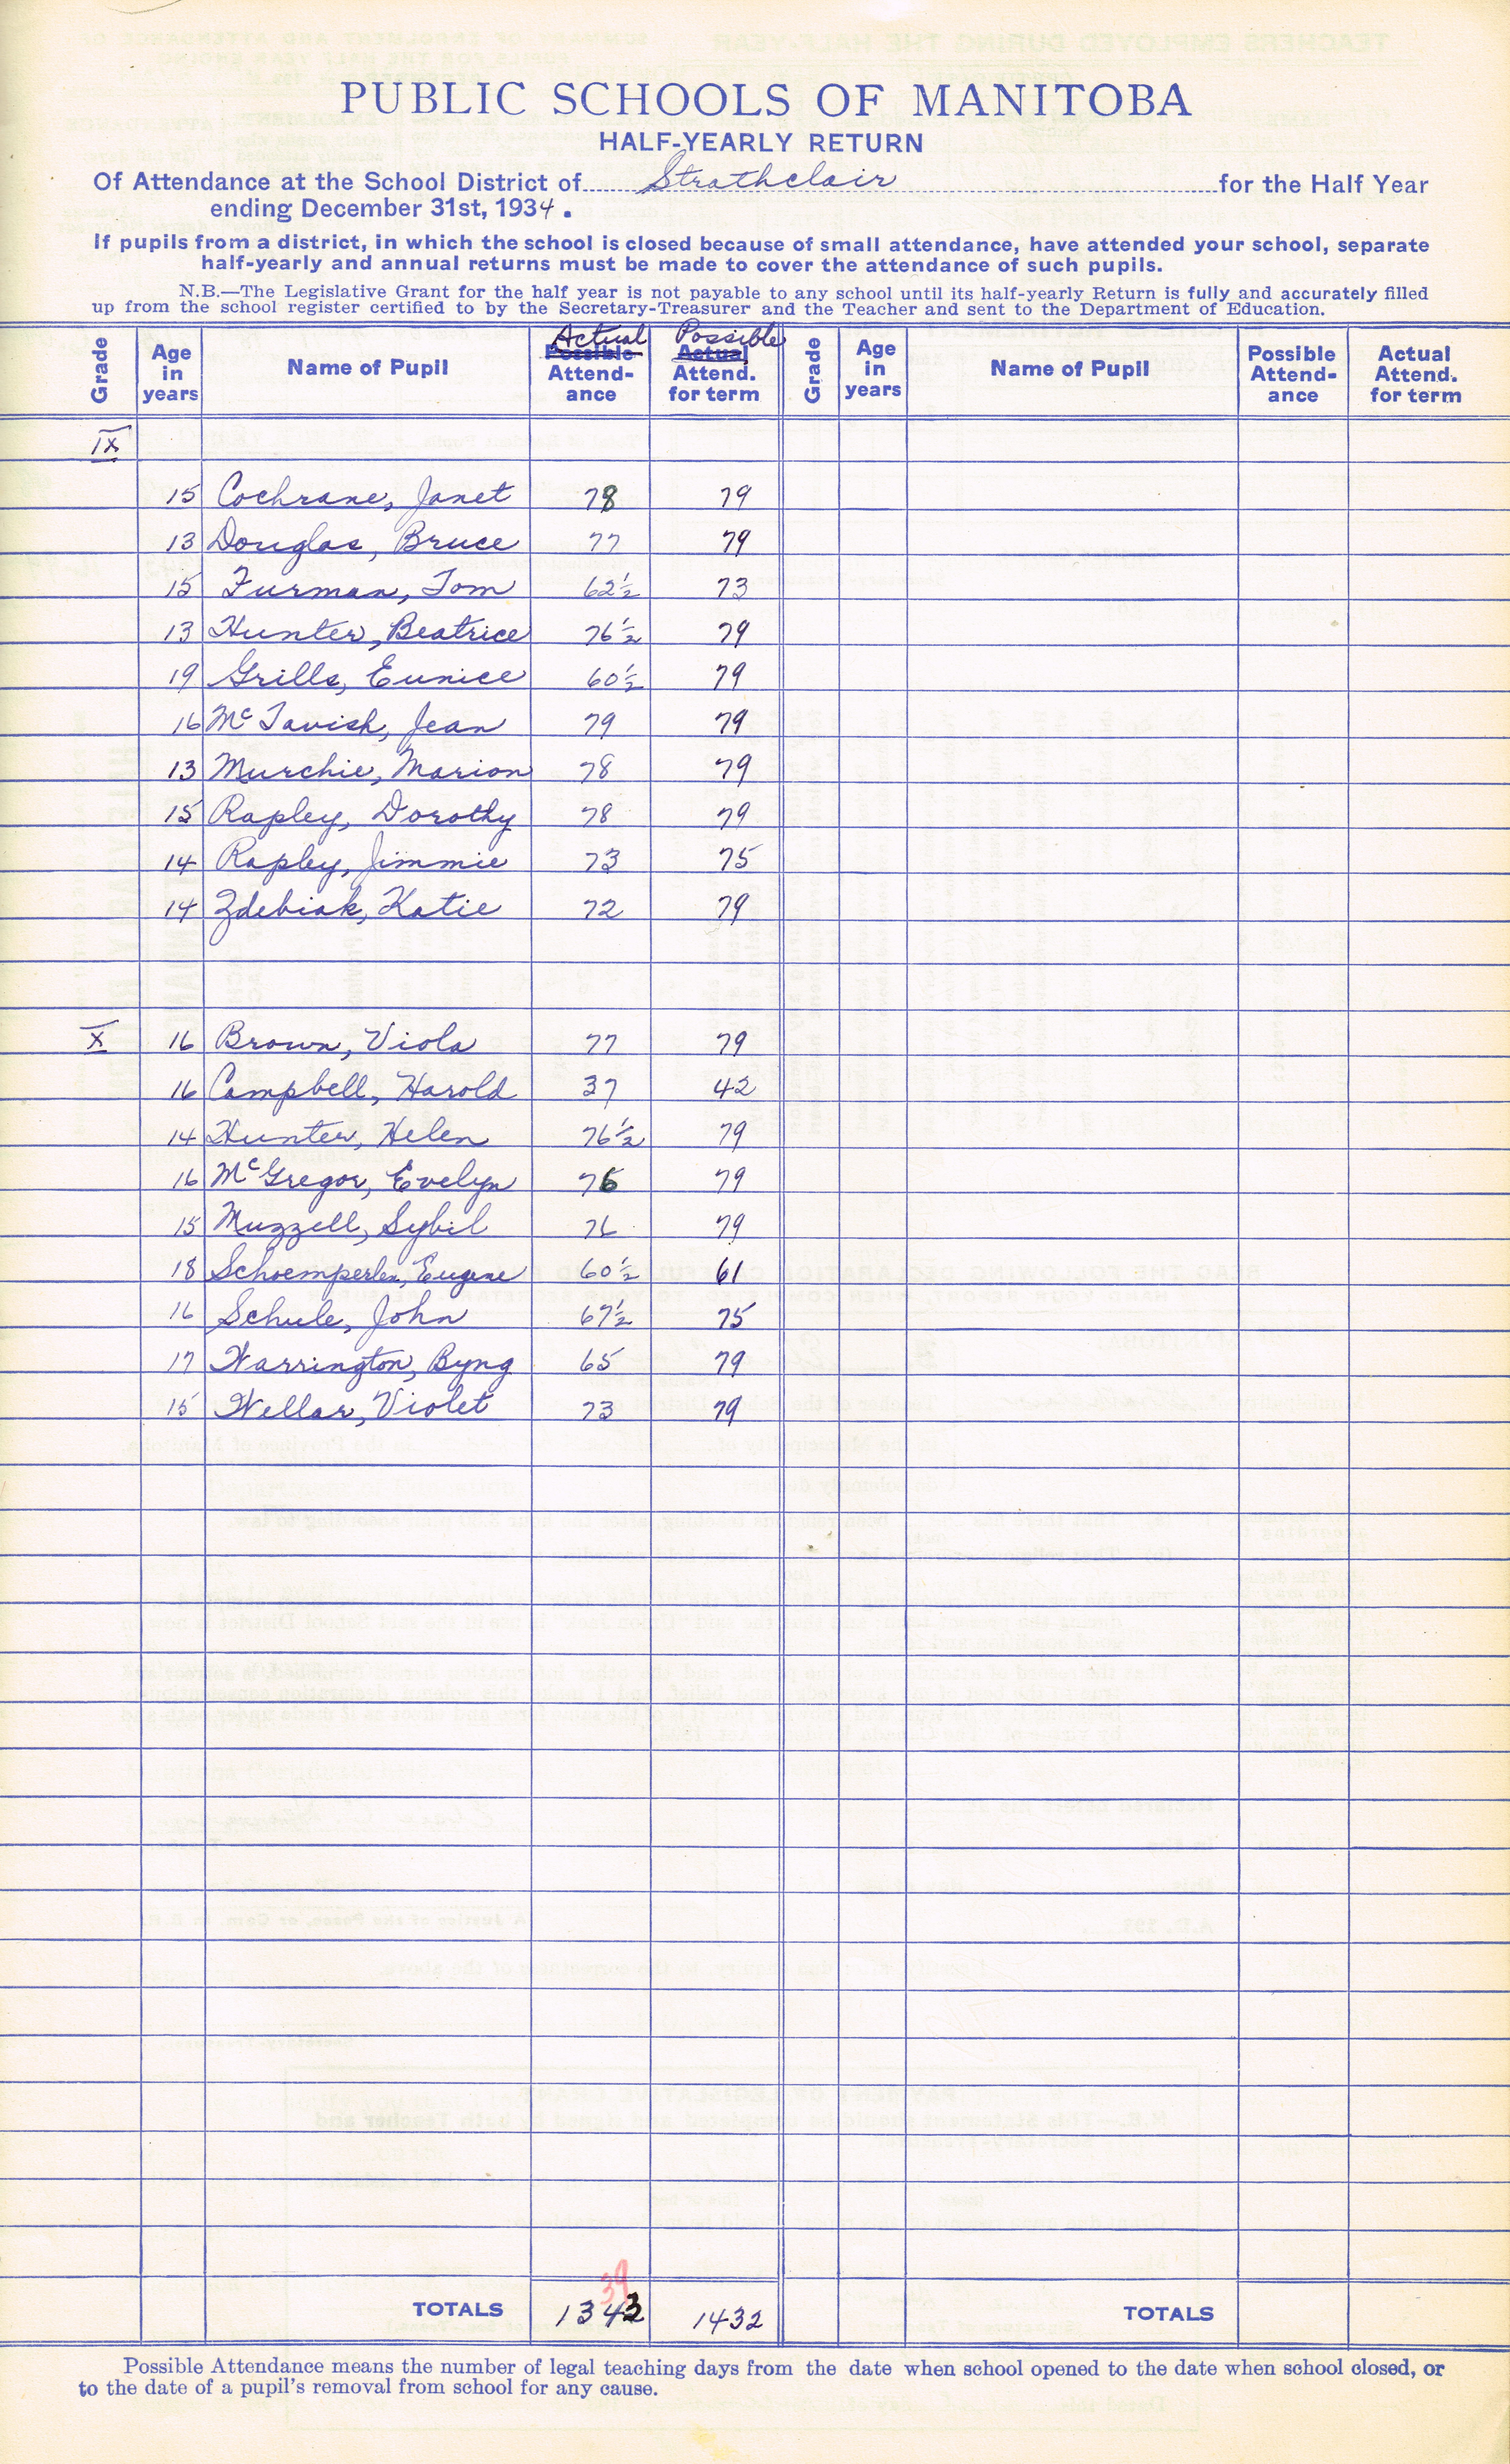 PUBLIC SCHOOLS OF MANITOBA
HALF-YEARLY RETURN
Of Attendance at the School District of Strathclair for the Half Year
ending December 31st, 1934.
If pupils from a district, in which the school is closed because of small attendance, have attended your school, separate
half-yearly and annual returns must be made to cover the attendance of such pupils.
N.B.—The Legislative Grant for the half year is not payable to any school until its half-yearly Return is fully and accurately filled
up from the school register certified to by the Secretary-Treasurer and the Teacher and sent to the Department of Education.
Grade Age in years Name of Pupil Actual Possible Attend-ance Possible Actual Attend. for term Grade Age in years Name of Pupil Possible Attend-ance Actual Attend. for term
IX
15 Cochrane, Janet 78 79
13 Douglas, Bruce 77 79
15 Furman, Tom 62½ 73
13 Hunter, Beatrice 76½ 79
19 Grills, Eunice 60½ 79
16 McTavish, Jean 79 79
13 Murchie, Marion 78 79
15 Rapley, Dorothy 78 79
14 Rapley, Jimmie 73 75
14 Zdebiak, Katie 72 79
X 16 Brown, Viola 77 79
16 Campbell, Harold 37 42
14 Hunter, Helen 76½ 79
16 McGregor, Evelyn 76 79
15 Muzzell, Sybil 76 79
18 Schoemperlen, Eugene 60½ 61
16 Schule, John 67½ 75
17 Warrington, Byng 65 79
15 Wellar, Violet 73 79
39
TOTALS 1343 1432 TOTALS
Possible Attendance means the number of legal teaching days from the date when school opened to the date when school closed, or
to the date of a pupil's removal from school for any cause.